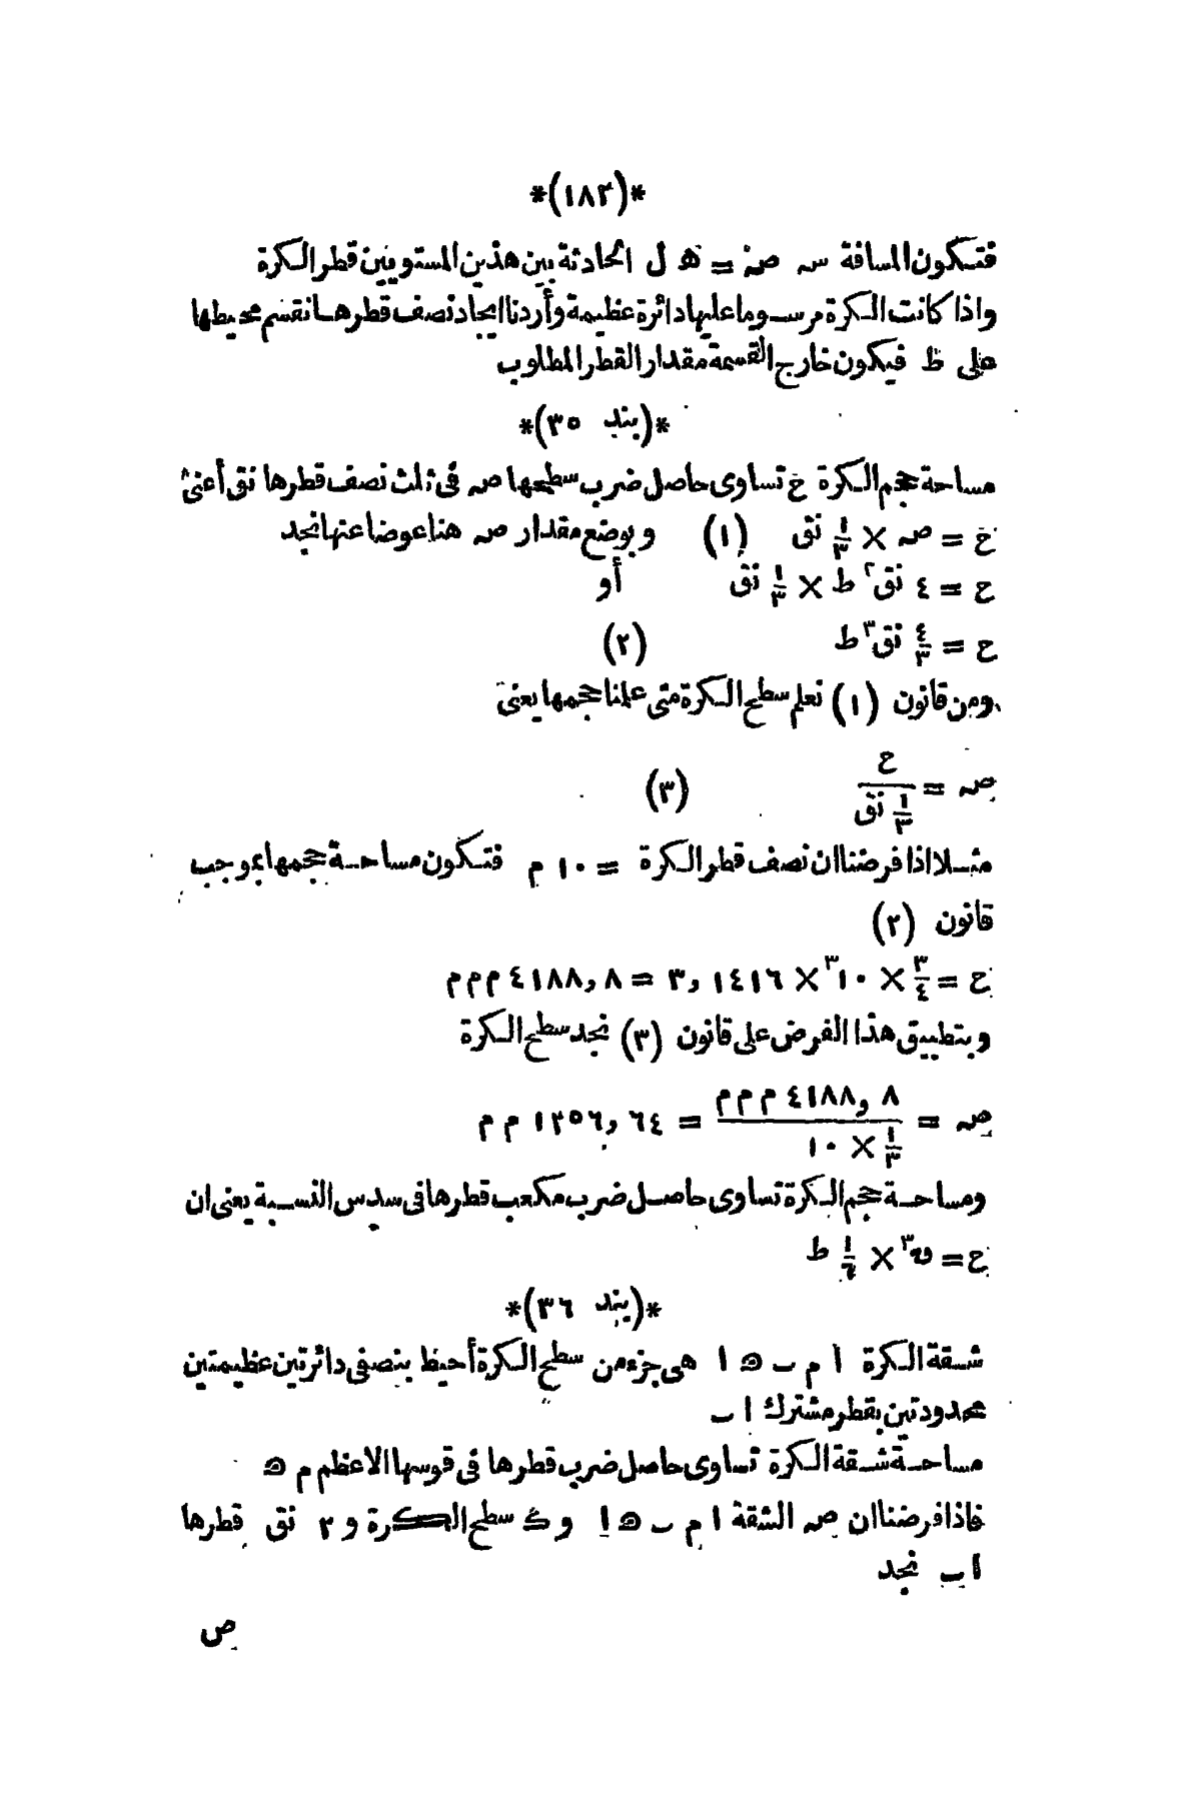 *(١٨٢)*
فتكون المسافة س ص = ه ل الحادثة بين هذين المستويين قطر الكرة
واذا كانت الكرة مرسوما عليها دائرة عظيمة وأردنا ايجاد نصف قطرها نقسم محيطها
على ط فيكون خارج القسمة مقدار القطر المطلوب
*(بند ٣٥)*
مساحة حجم الكرة ح تساوى حاصل ضرب سطحها صہ فى ثلث نصف قطرها نق أعنى
ح = صہ × ١/٣ نق (١) وبوضع مقدار صہ هنا عوضا عنها نجد
ح = ٤ نق٢ ط × ١/٣ نق أو
ح = ٤/٣ نق٣ ط (٢)
ومن قانون (١) نعلم سطح الكرة متى علمنا حجمها يعنى
صہ = ح / ١/٣ نق (٣)
مثلا اذا فرضنا ان نصف قطر الكرة = ١٠ م فتكون مساحة حجمها بموجب
قانون (٢)
ح = ٣/٤ × ١٠٣ × ٣,١٤١٦ = ٤١٨٨,٨ م م م
وبتطبيق هذا الفرض على قانون (٣) نجد سطح الكرة
صہ = ٤١٨٨,٨ م م م / ١/٣ × ١٠ = ١٢٥٦,٦٤ م م
ومساحة حجم الكرة تساوى حاصل ضرب مكعب قطرها فى سدس النسبة يعنى ان
ح = ق٣ × ١/٦ ط
*(بند ٣٦)*
شقة الكرة ا م ب ه ا هى جزء من سطح الكرة أحيط بنصفى دائرتين عظيمتين
محدودتين بقطر مشترك ا ب
مساحة شقة الكرة تساوى حاصل ضرب قطرها فى قوسها الاعظم م ه
فاذا فرضنا ان صہ الشقة ا م ب ه ا و ك سطح الكرة و ٢ نق قطرها
ا ب نجد
ص